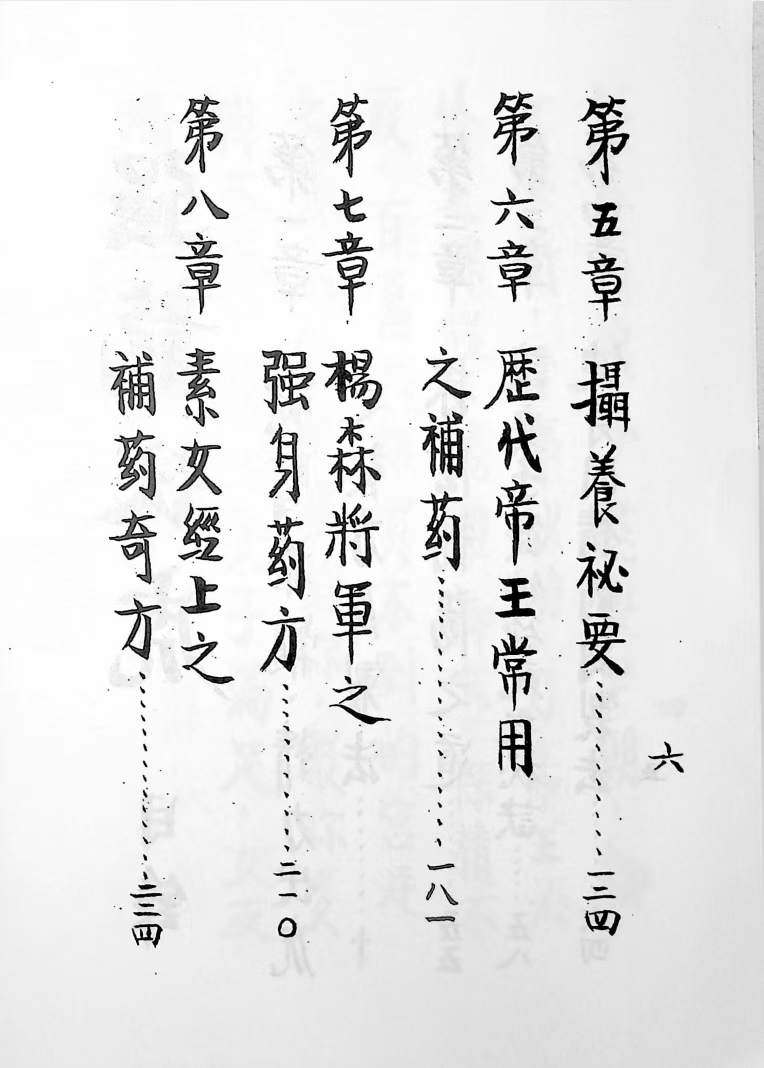 第五章 攝養祕要……………一三四
第六章 歷代帝王常用
之補药……………一八一
第七章 楊森將軍之
强身药方……………二一〇
第八章 素女經上之
補药奇方……………二三四
六